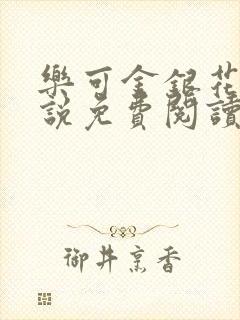 樂可金銀花
說免費閱讀
御井烹香